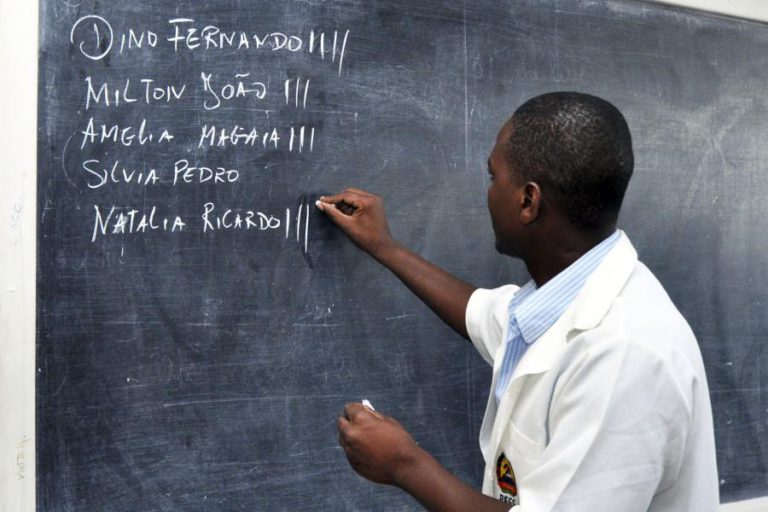 ① DINO FERNANDO ||||
MILTON JOÃO |||
AMELIA MAGAIA |||
SILVIA PEDRO
NATALIA RICARDO |||